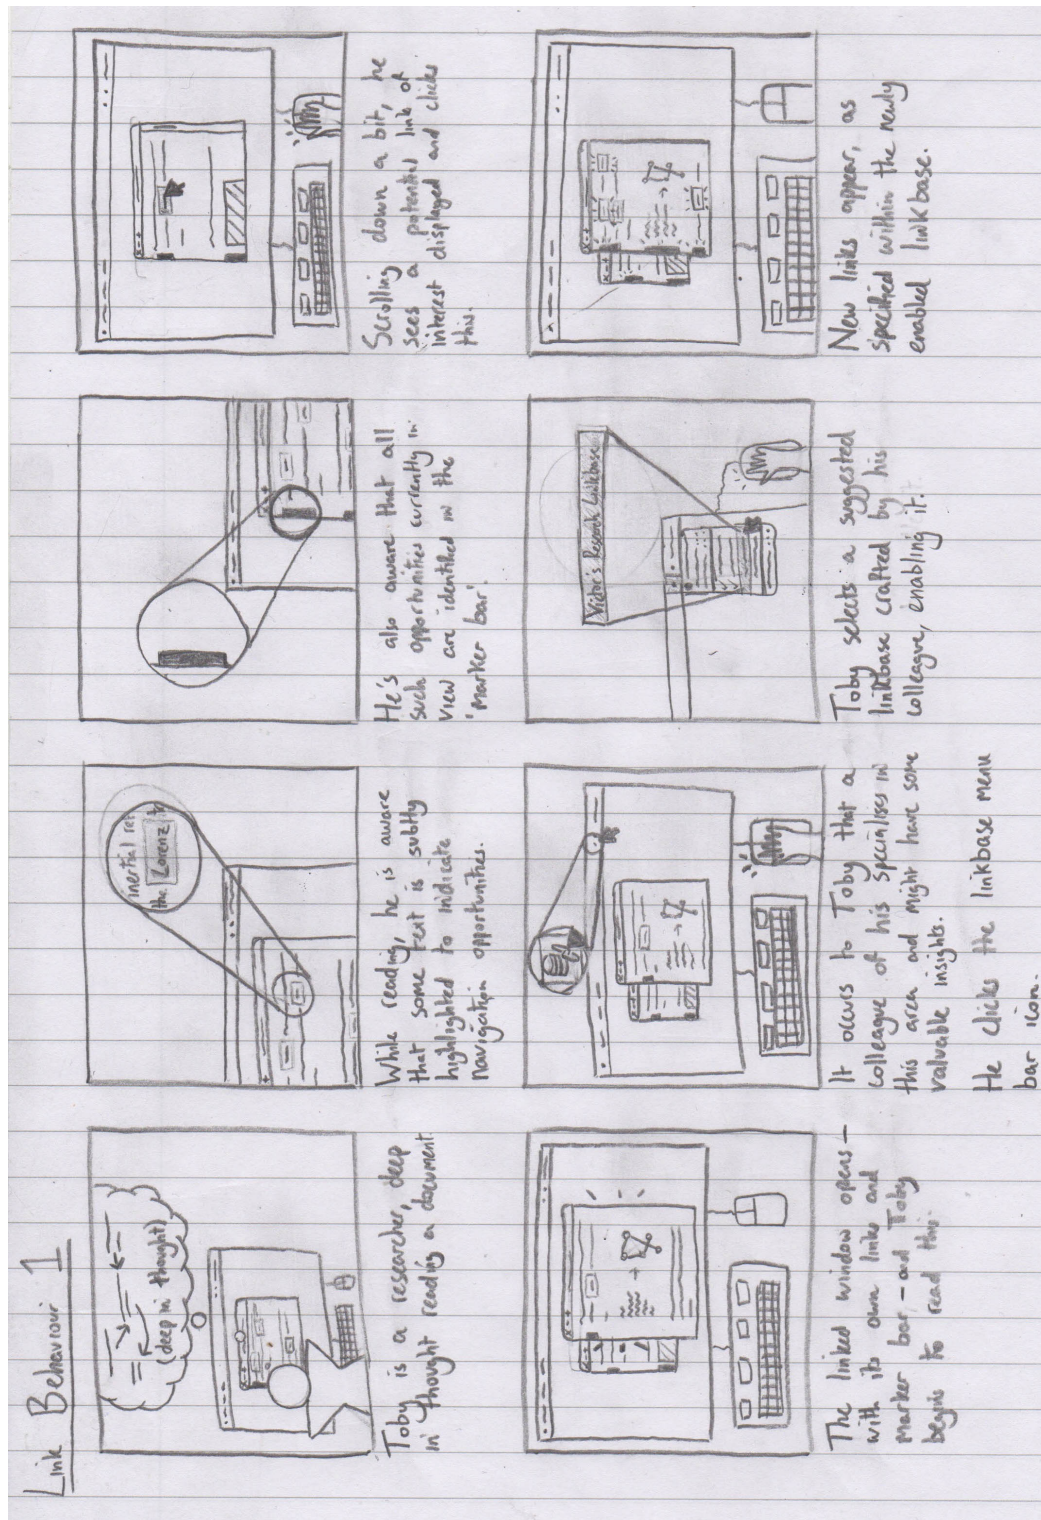 Link Behaviour 1
(deep in thought)
Toby is a researcher, deep
in thought reading a document.
inertial ref
the Lorenz
While reading, he is aware
that some text is subtly
highlighted to indicate
navigation opportunities.
He's also aware that all
such opportunities currently in
view are identified in the
'marker bar'.
Scrolling down a bit, he
sees a potential link of
interest displayed and clicks
this.
The linked window opens –
with its own links and
marker bar – and Toby
begins to read this.
It occurs to Toby that a
colleague of his specialises in
this area and might have some
valuable insights.
He clicks the linkbase menu
bar icon.
Victor's Research Linkbase
Toby selects a suggested
linkbase crafted by his
colleague, enabling it.
New links appear, as
specified within the newly
enabled linkbase.